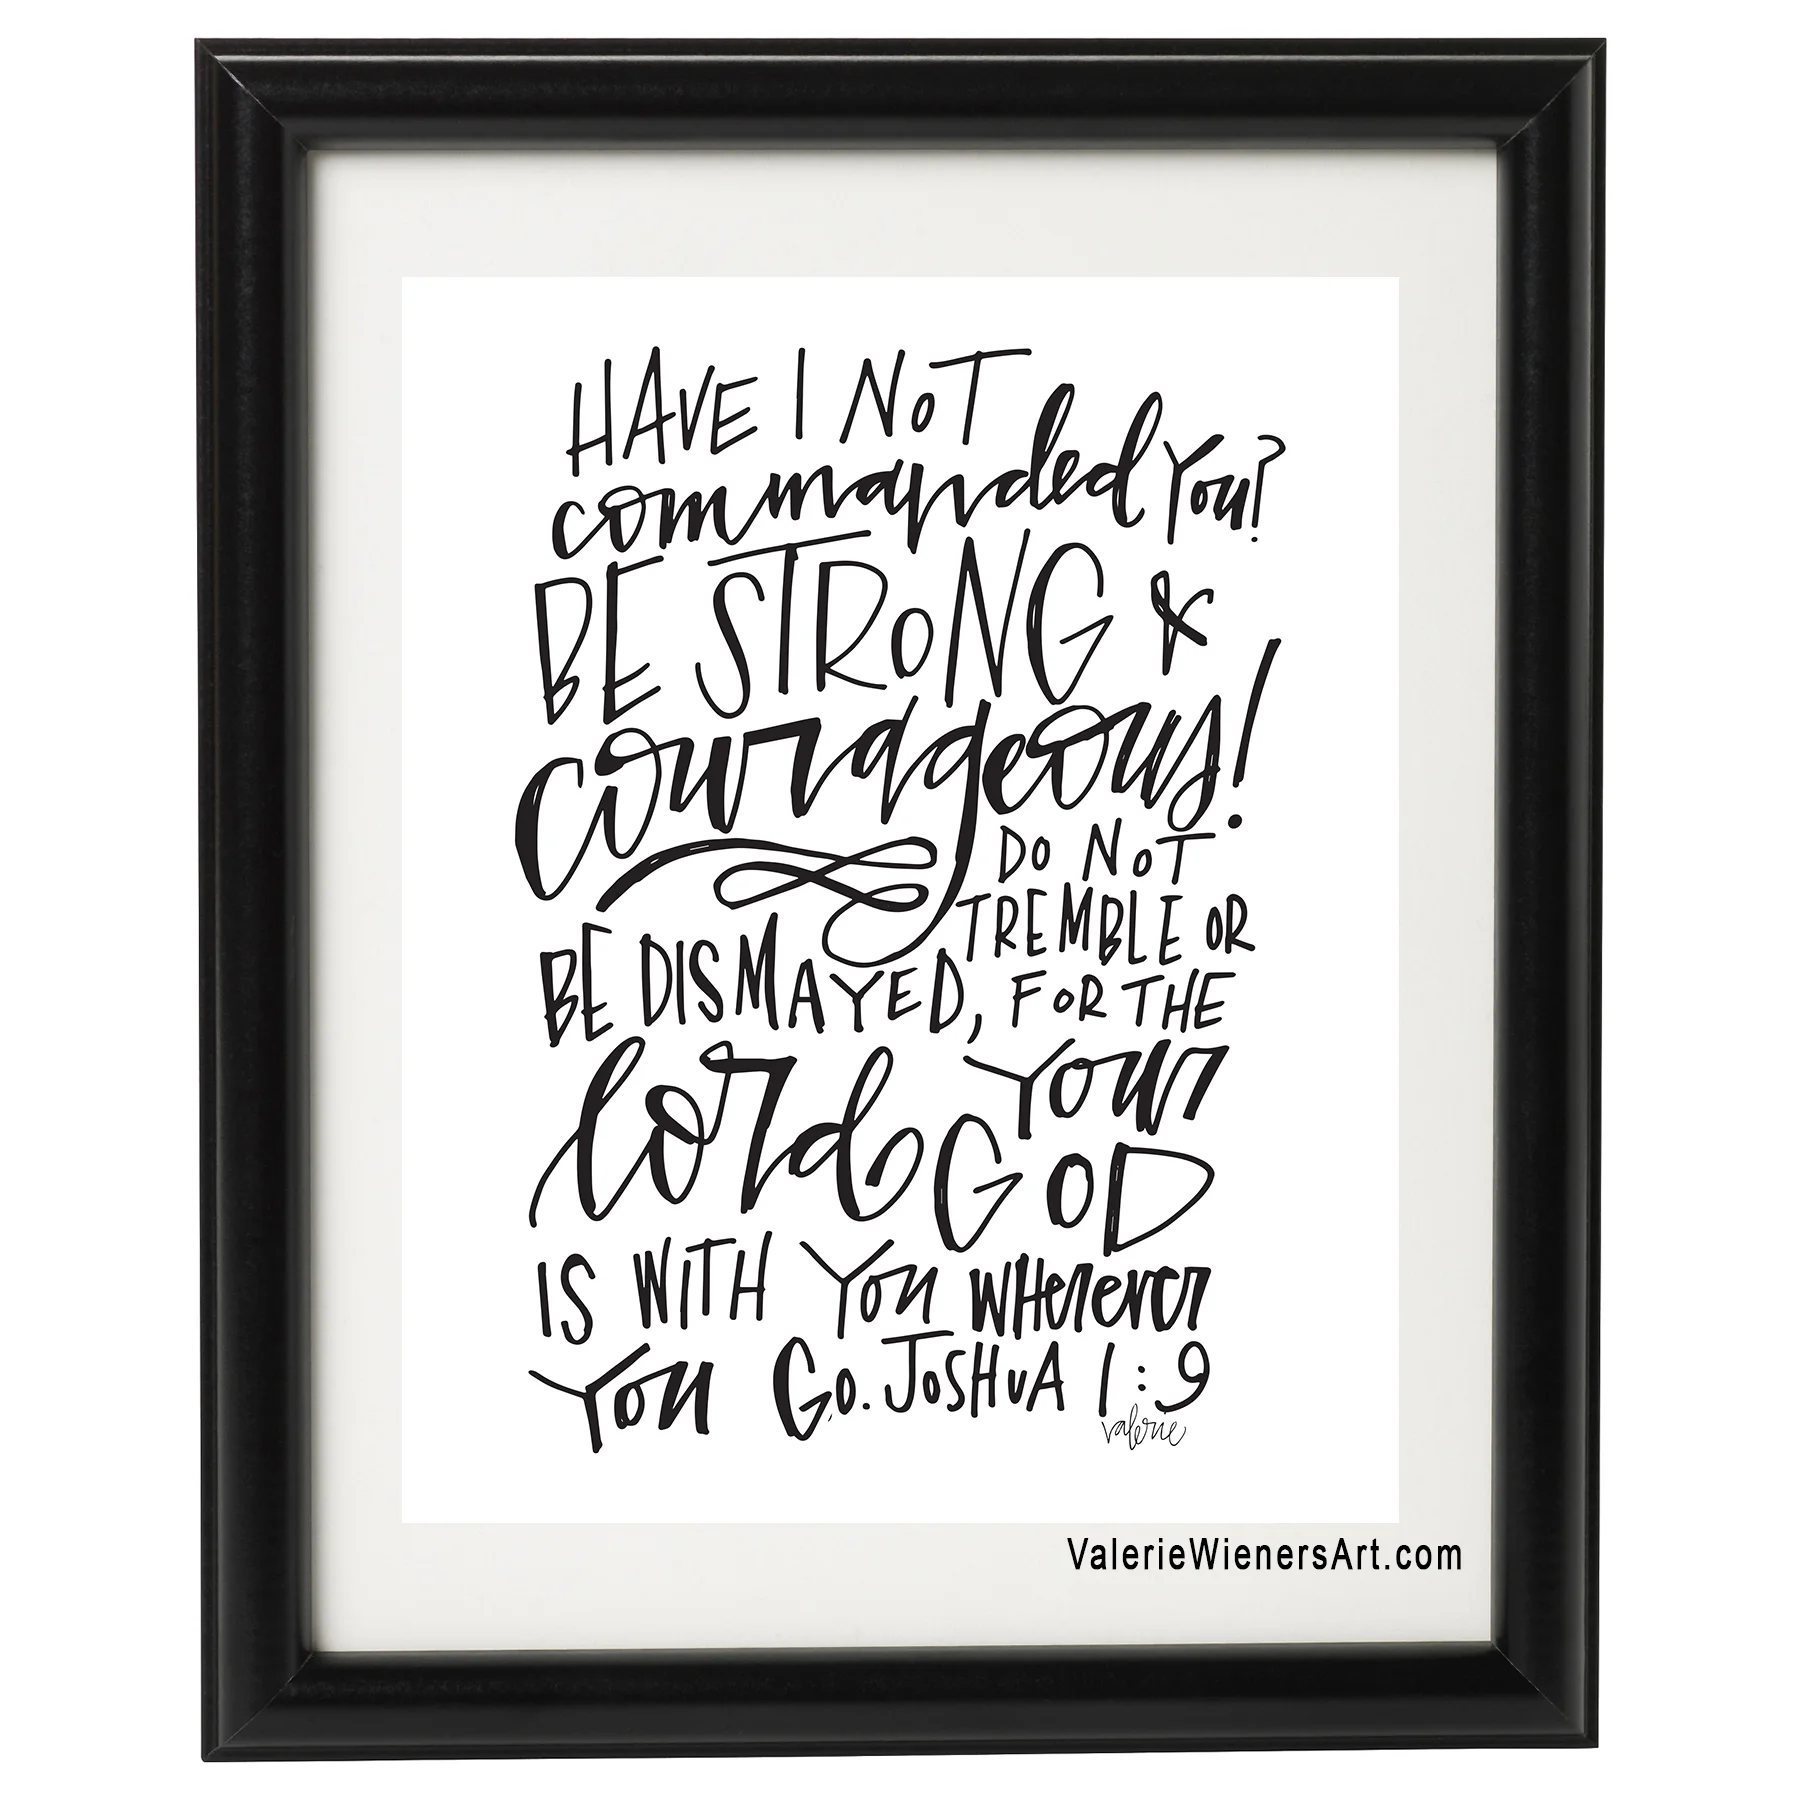 HAVE I NOT
commanded You?
BE STRONG &
courageous!
DO NOT
TREMBLE OR
BE DISMAYED, FOR THE
lord your
GOD
IS WITH You WHerever
You Go. JOSHUA 1:9
valerie
ValerieWienersArt.com